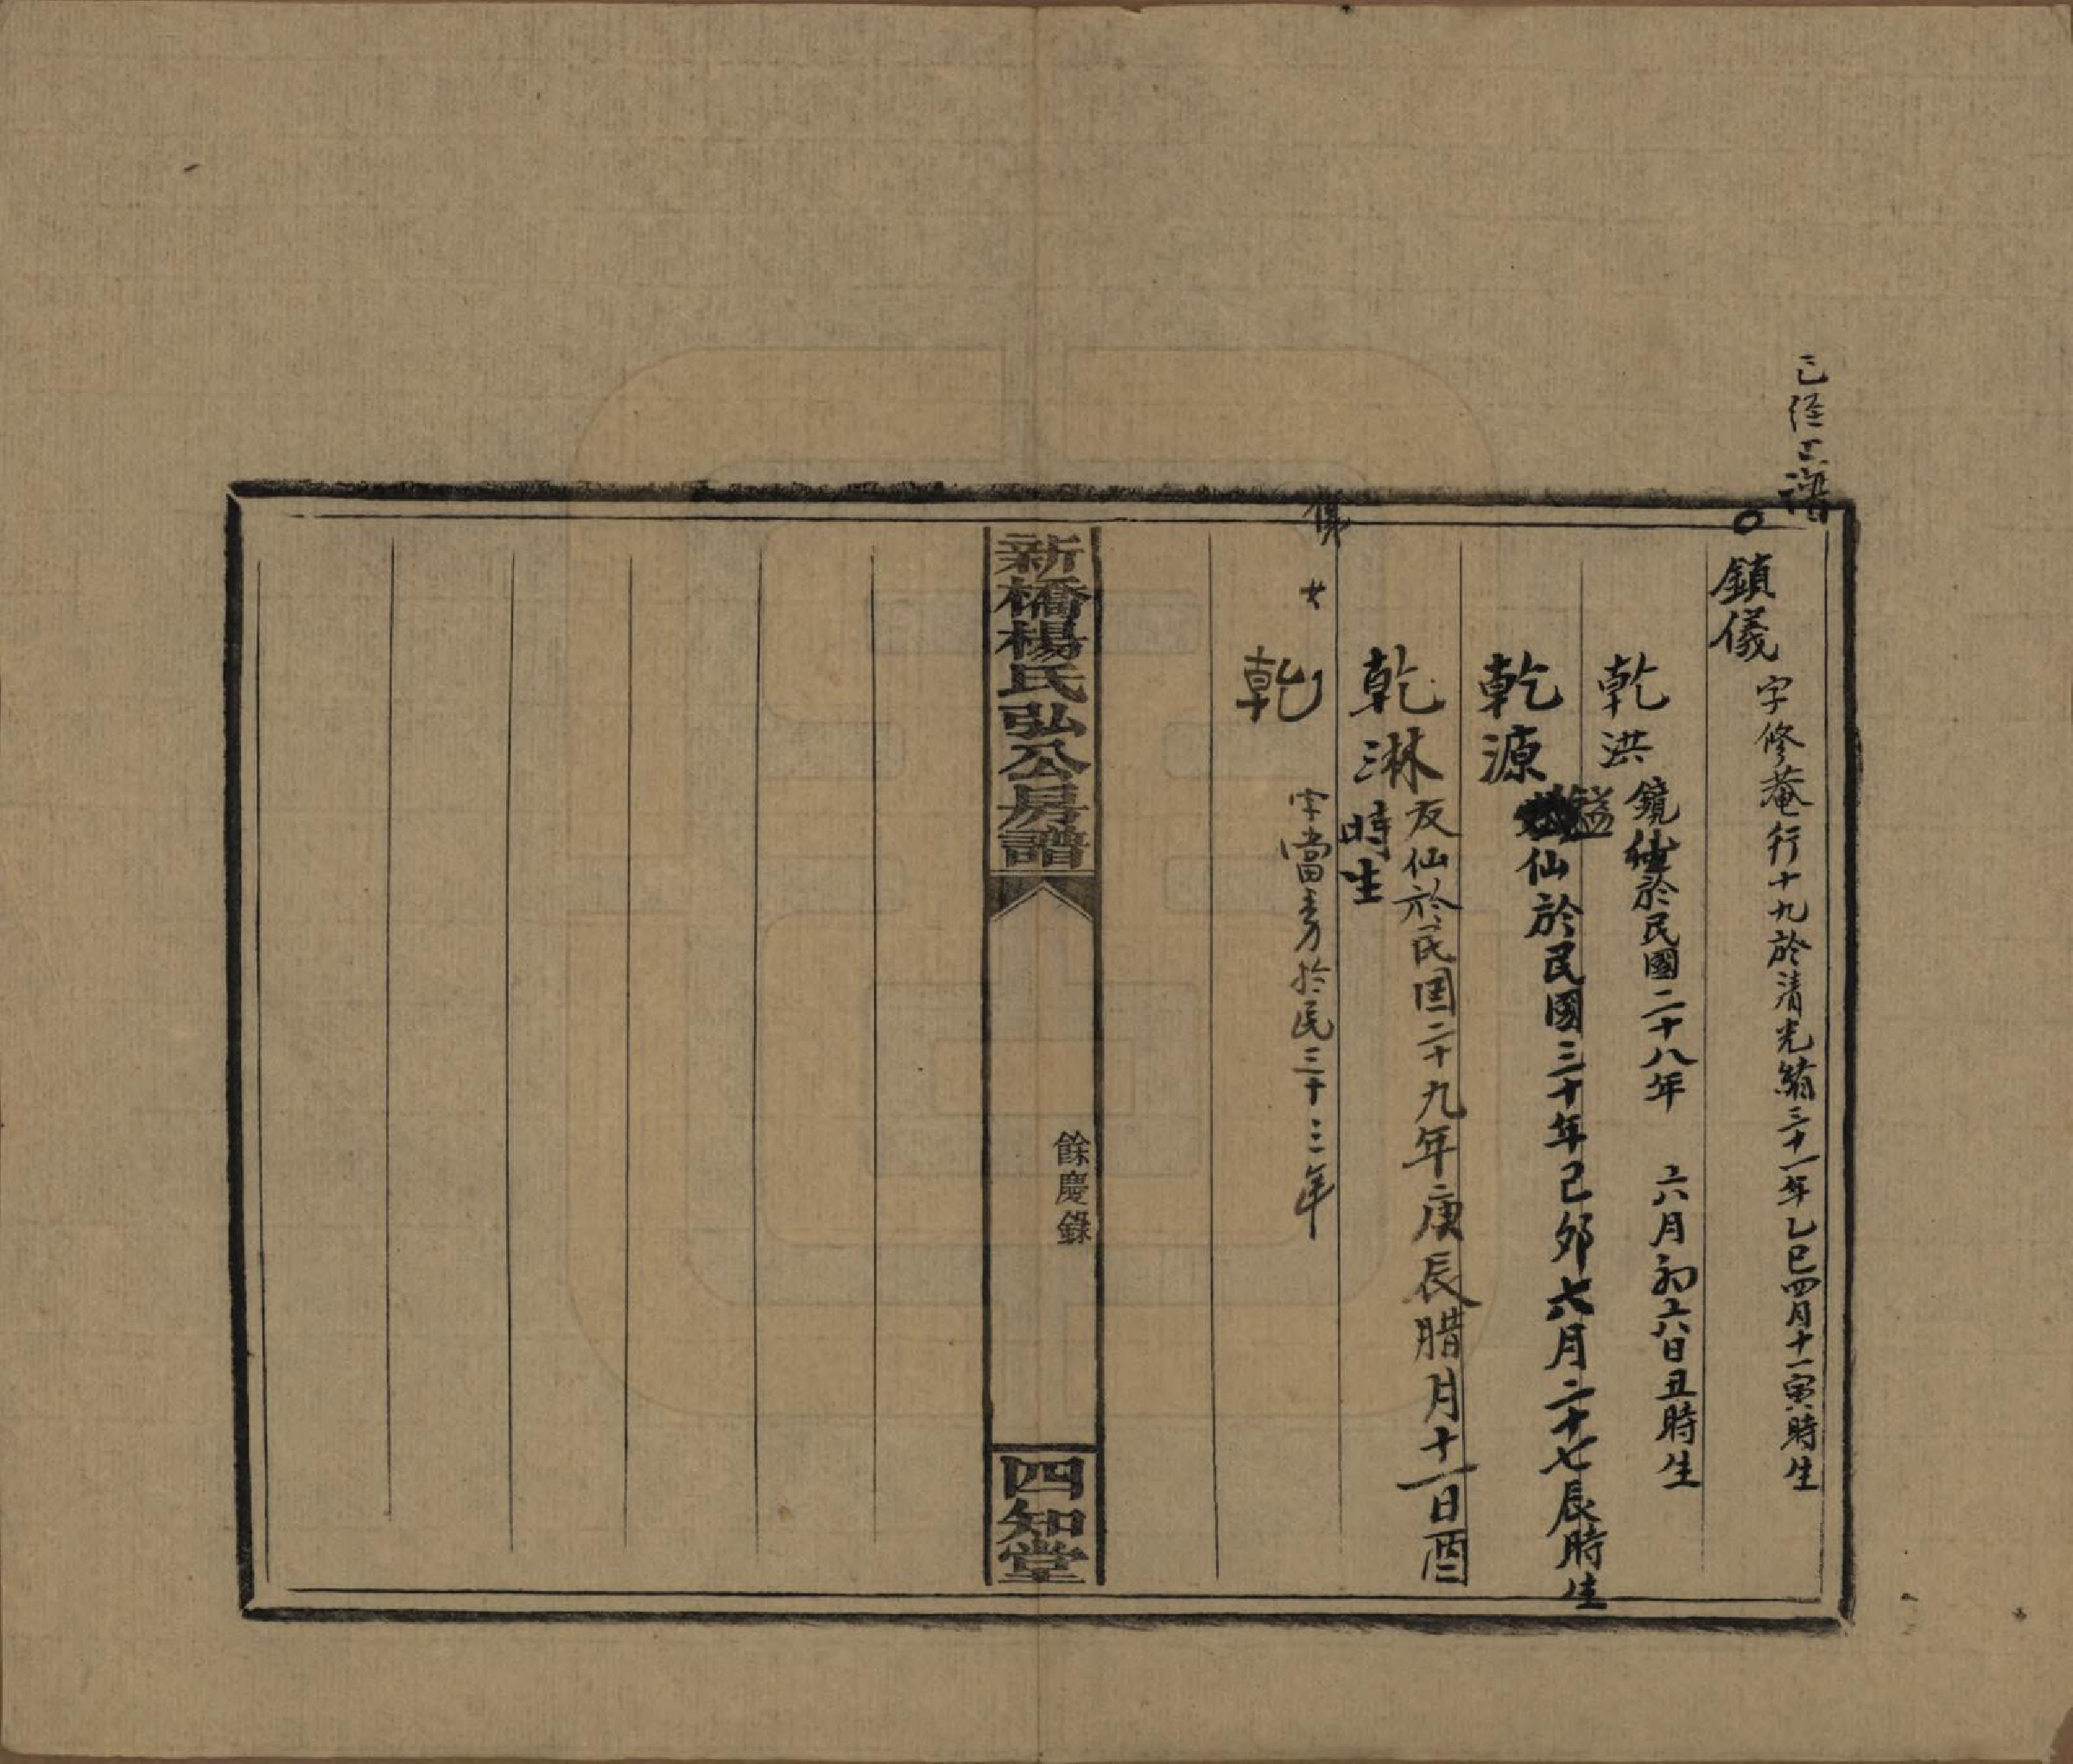 已經上譜
鎮儀 字修菴行十九於清光緒三十一年乙巳四月十一寅時生
乾洪 鏡仙於民國二十八年 六月初六日丑時生
乾源 鎰仙於民國三十年己卯六月二十七辰時生
乾淋 友仙於民国二十九年庚辰腊月十一日酉
時生
儀
乾 字當 於民三十三年
新橋楊氏弘公房譜
餘慶錄
四知堂